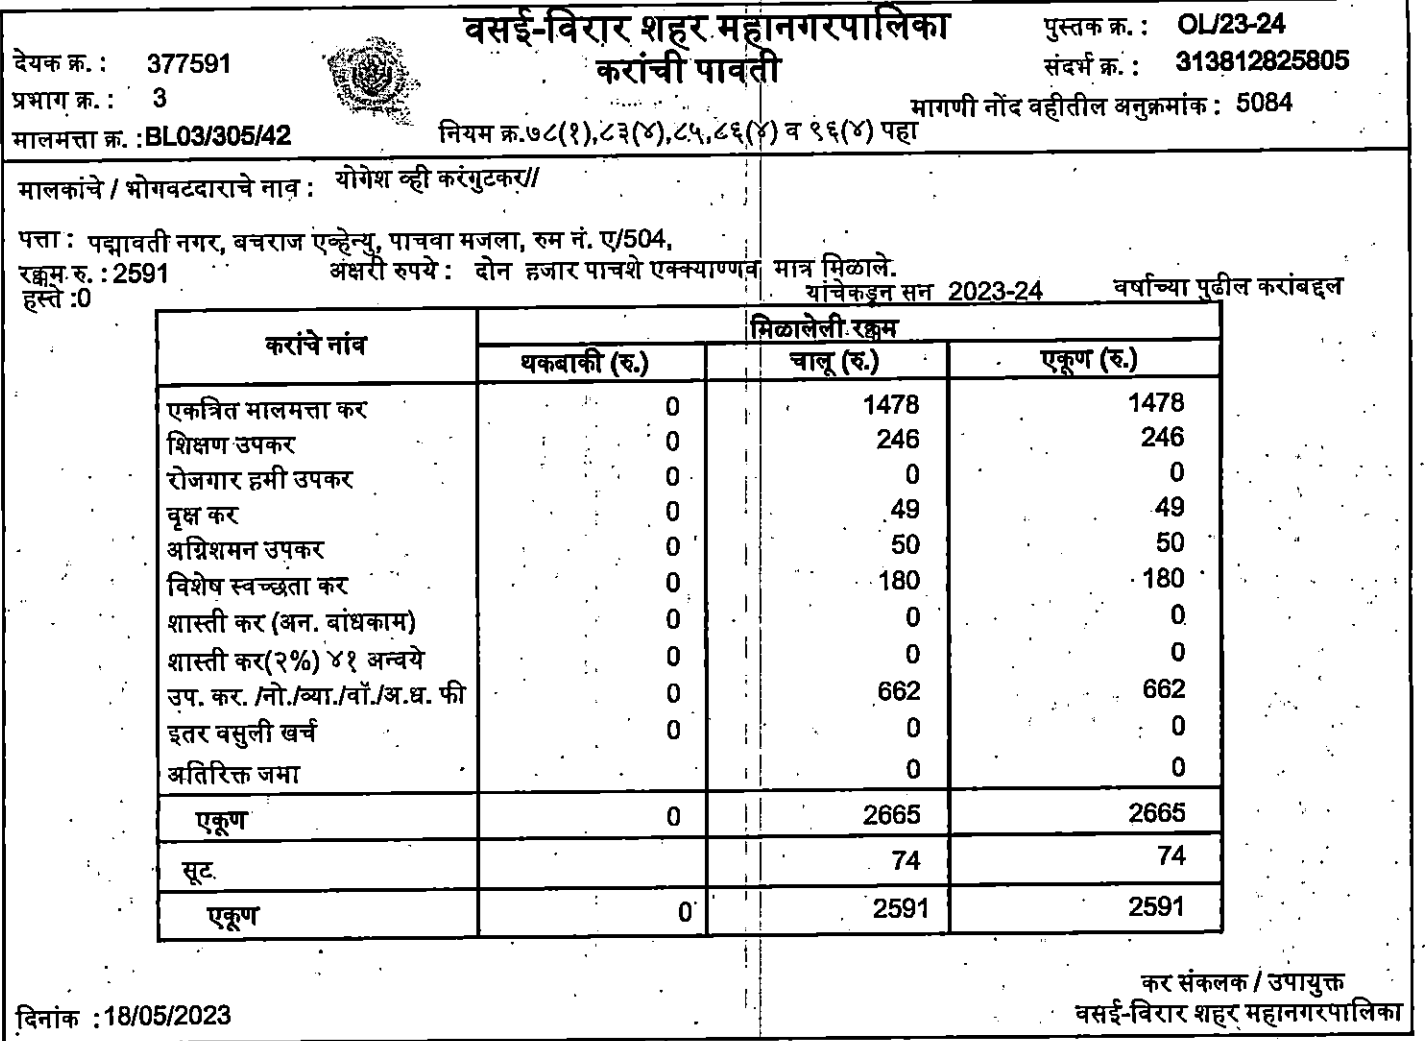 वसई-विरार शहर महानगरपालिका
करांची पावती
नियम क्र.७८(१),८३(४),८५,८६(४) व ९६(४) पहा
देयक क्र. : 377591
प्रभाग क्र. : 3
मालमत्ता क्र. :BL03/305/42
पुस्तक क्र. : OL/23-24
संदर्भ क्र. : 313812825805
मागणी नोंद वहीतील अनुक्रमांक : 5084
मालकांचे / भोगवटदाराचे नाव : योगेश व्ही करंगुटकर//
पत्ता : पद्मावती नगर, बचराज एव्हेन्यु, पाचवा मजला, रुम नं. ए/504,
रक्कम रु. : 2591 अक्षरी रुपये : दोन हजार पाचशे एक्क्याण्णव मात्र मिळाले.
हस्ते :0 यांचेकडून सन 2023-24 वर्षाच्या पुढील करांबद्दल
करांचे नांव मिळालेली रक्कम
थकबाकी (रु.) चालू (रु.) एकूण (रु.)
एकत्रित मालमत्ता कर 0 1478 1478
शिक्षण उपकर 0 246 246
रोजगार हमी उपकर 0 0 0
वृक्ष कर 0 49 49
अग्निशमन उपकर 0 50 50
विशेष स्वच्छता कर 0 180 180
शास्ती कर (अन. बांधकाम) 0 0 0
शास्ती कर(२%) ४१ अन्वये 0 0 0
उप. कर. /नो./व्या./वॉ./अ.ध. फी 0 662 662
इतर वसुली खर्च 0 0 0
अतिरिक्त जमा 0 0
एकूण 0 2665 2665
सूट 74 74
एकूण 0 2591 2591
कर संकलक / उपायुक्त
दिनांक :18/05/2023 वसई-विरार शहर महानगरपालिका